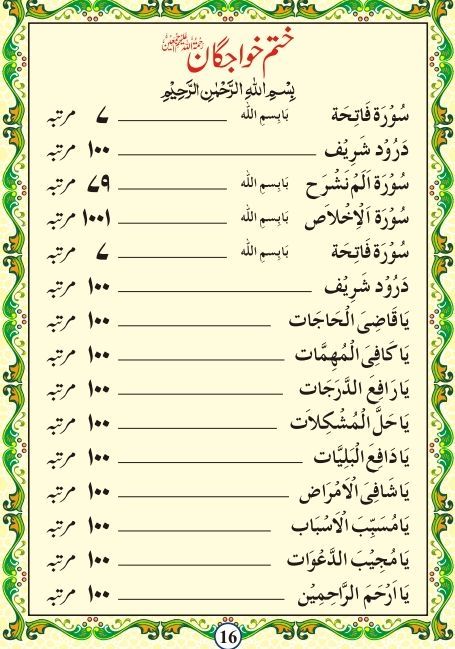 ختم خواجگان
بِسْمِ اللهِ الرَّحْمٰنِ الرَّحِيْمِ
سُوْرَة فَاتِحَة بَابِسمِ الله ____________ ۷ مرتبہ
دَرُوْد شَرِيْف ____________ ۱۰۰ مرتبہ
سُوْرَة اَلَمْ نَشْرَح بَابِسمِ الله ____________ ۷۹ مرتبہ
سُوْرَة اَلْاِخْلَاص بَابِسمِ الله ____________ ۱۰۰۱ مرتبہ
سُوْرَة فَاتِحَة بَابِسمِ الله ____________ ۷ مرتبہ
دَرُوْد شَرِيْف ____________ ۱۰۰ مرتبہ
يَا قَاضِىَ الْحَاجَات ____________ ۱۰۰ مرتبہ
يَا كَافِىَ الْمُهِمَّات ____________ ۱۰۰ مرتبہ
يَا رَافِعَ الدَّرَجَات ____________ ۱۰۰ مرتبہ
يَا حَلَّ الْمُشْكِلَات ____________ ۱۰۰ مرتبہ
يَا دَافِعَ الْبَلِيَّات ____________ ۱۰۰ مرتبہ
يَا شَافِىَ الْاَمْرَاض ____________ ۱۰۰ مرتبہ
يَا مُسَبِّبَ الْاَسْبَاب ____________ ۱۰۰ مرتبہ
يَا مُجِيْبَ الدَّعْوَات ____________ ۱۰۰ مرتبہ
يَا اَرْحَمَ الرَّاحِمِيْن ____________ ۱۰۰ مرتبہ
16